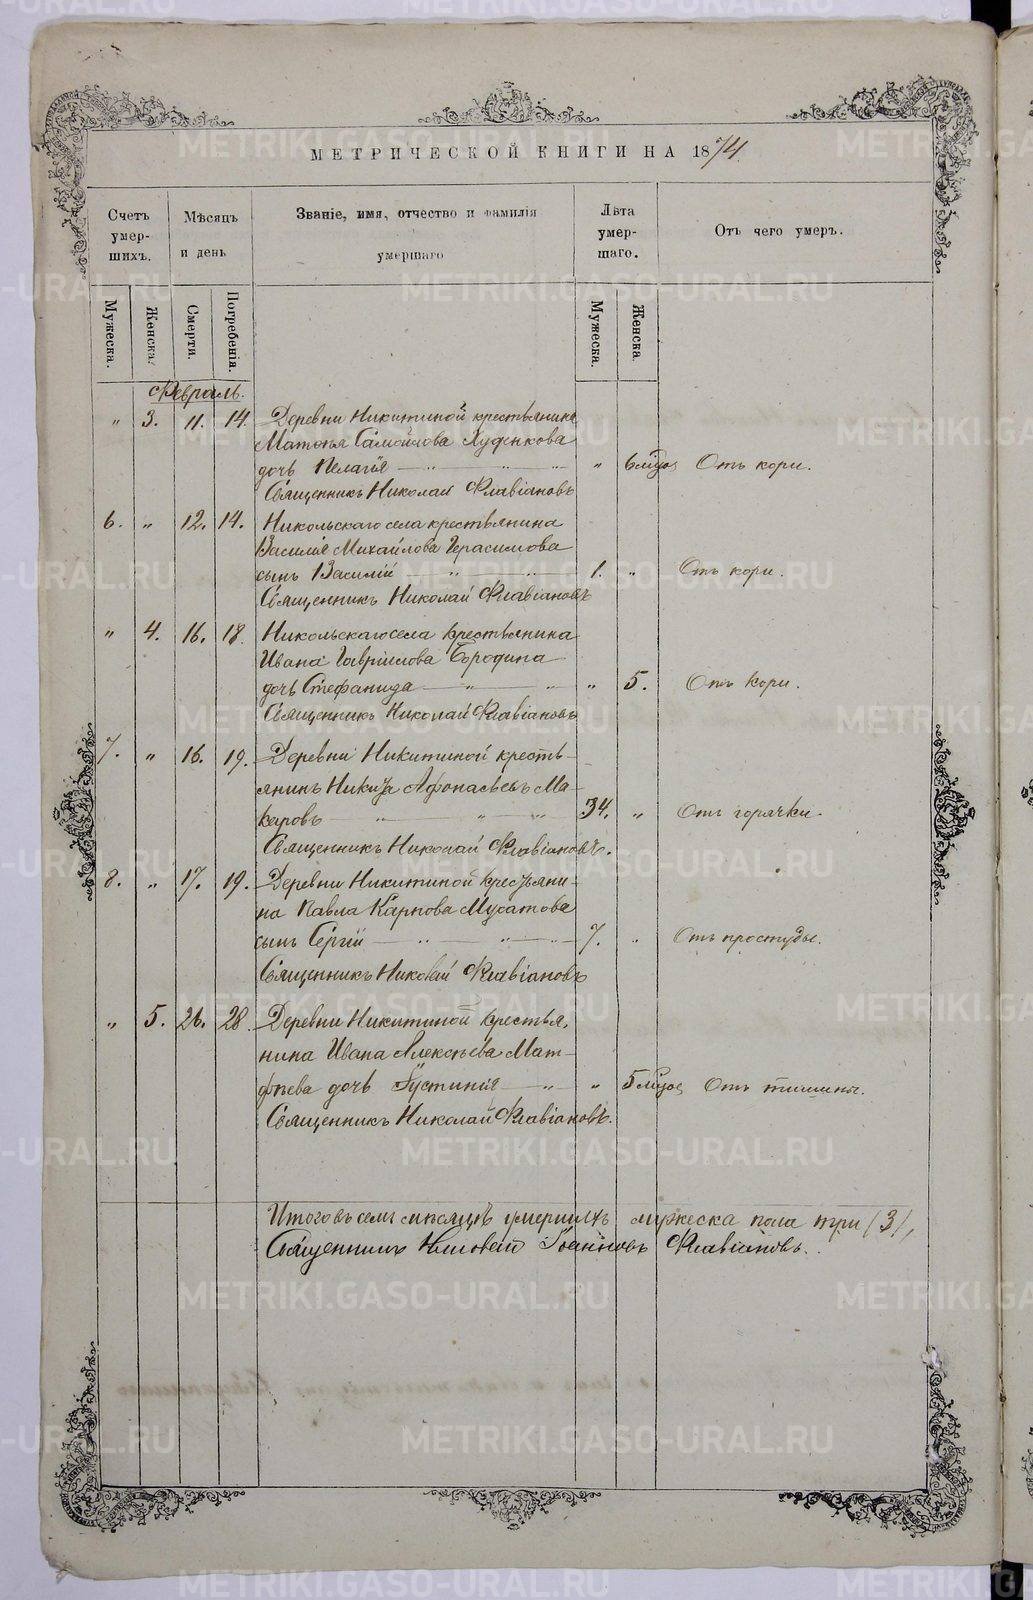 МЕТРИЧЕСКОЙ КНИГИ НА 1874
Счетъ умер-шихъ.
Мѣсяцъ и день
Званіе, имя, отчество и фамилія умершаго
Лѣта умер-шаго.
Отъ чего умеръ.
Мужеска.
Женска.
Смерти.
Погребенія.
Мужеска.
Женска.
Февраль.
" 3. 11. 14. Деревни Никитиной крестьянина
Матвѣя Самойлова
дочь Пелагія " 6 мѣсяц Отъ кори.
Священникъ Николай Флавіановъ
6. " 12. 14. Никольскаго села крестьянина
Василія Михайлова Герасимова
сынъ Василій 1. " Отъ кори.
Священникъ Николай Флавіановъ
" 4. 16. 18. Никольскаго села крестьянина
Ивана Гавріилова Бородина
дочь Стефанида " 5. Отъ кори.
Священникъ Николай Флавіановъ
7. " 16. 19. Деревни Никитиной кресть-
янинъ Никита Афонасьевъ Ма-
каровъ 34. " Отъ горячки.
Священникъ Николай Флавіановъ.
8. " 17. 19. Деревни Никитиной крестьяни-
на Павла Карпова Мусатова
сынъ Сергій 7. " Отъ простуды.
Священникъ Николай Флавіановъ
" 5. 26. 28. Деревни Никитиной крестья-
нина Ивана Алексѣева Мат-
фѣева дочь Іустинія " 5 мѣсяц Отъ
Священникъ Николай Флавіановъ.
Итого въ семъ мѣсяцѣ умершихъ мужеска пола три (3),
Священникъ Николай Іоанновъ Флавіановъ.
METRIKI.GASO-URAL.RU